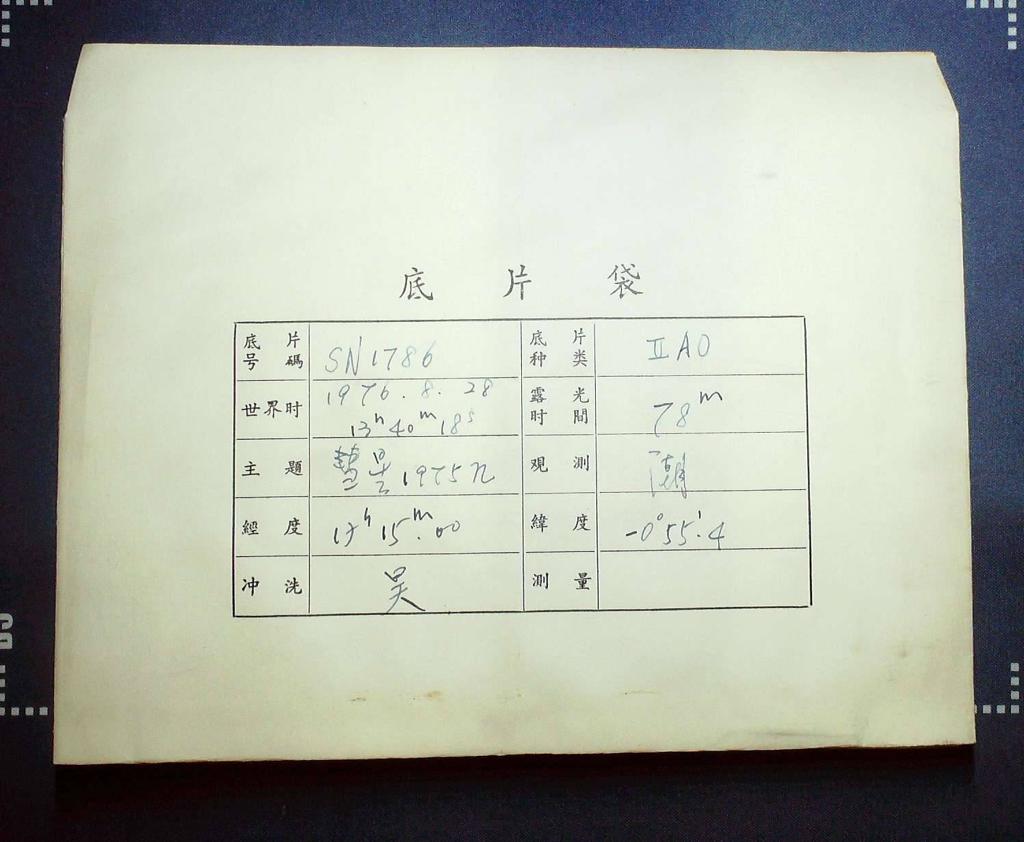 底 片 袋
底 片
号 碼
SN1786
底 片
种 类
ⅡAO
世界时
1976.8.28
13ʰ40ᵐ18ˢ
露 光
时 間
78ᵐ
主 題
彗星1975n
观 測
潮
經 度
15ᵐ.00
緯 度
-0°55'.4
冲 洗
吴
測 量